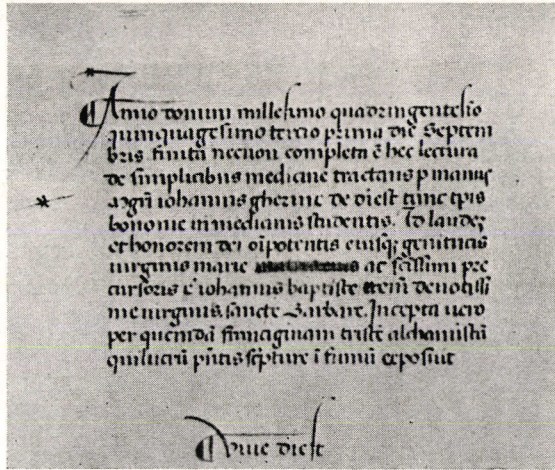 Anno domini millesimo quadringentesio
quinquagesimo tercio prima die Septem
bris finita necnon completa ē hec lectura
de simplicibus medicine tractans p manus
mgrī iohannis gherinc de diest tūnc tp̄is
bononie in medicinis studentis. Ad laudez
et honorem dei oīpotentis eiusqȝ genitricis
uirginis marie ac sc̄issimi pre
cursoris eꝰ iohannis baptiste deuotissi
me uirginis sancte Barbare. Incepta uero
per quendā tristē alchimistā
qui lucrū p̄ntis sc̄pture ī fumū exposuit
diest